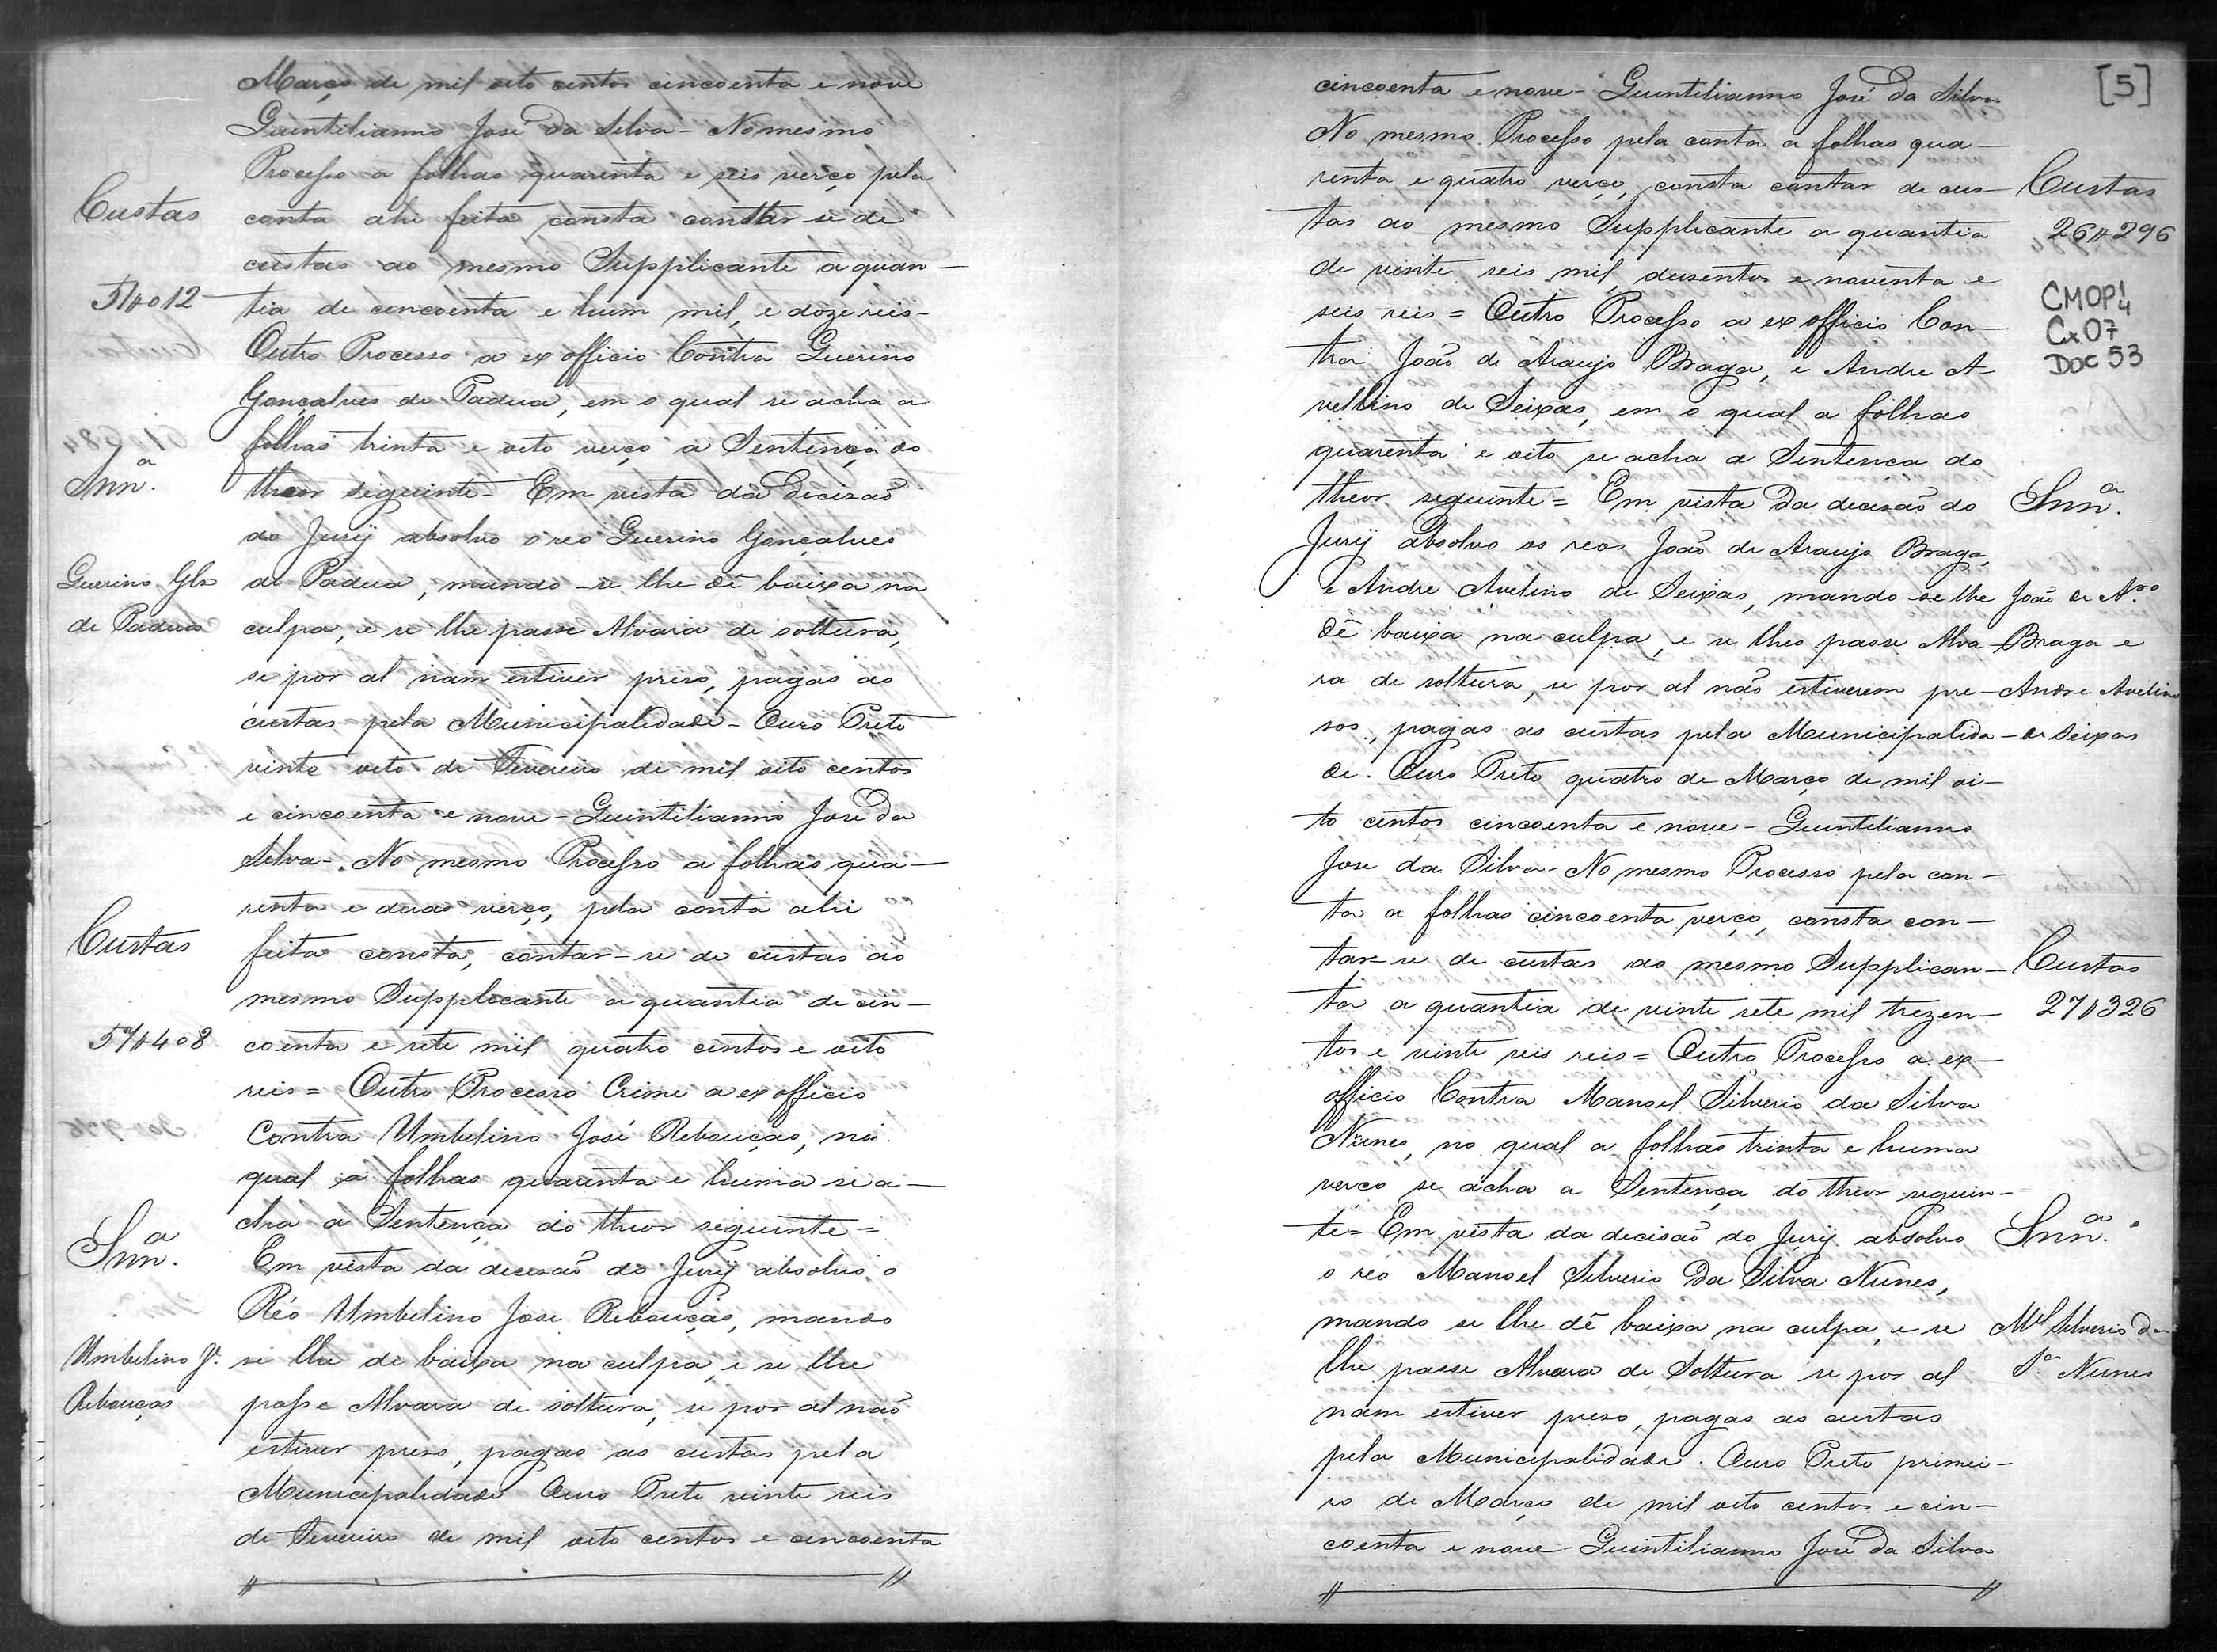 Março de mil oito centos cincoenta e nove
Guintilianno José da Silva - No mesmo
Processo a folhas quarenta e seis verço pela
Custas
conta ahi feita consta conttar se de
custas ao mesmo Supplicante a quan-
51#012
tia de cincoenta e hum mil, e doze reis-
Outro Processo a ex officio Contra Guerino
Gonçalves de Padua, em o qual se acha a
folhas trinta e oito verço a Sentença do
Snnª.
theor seguinte- Em vista da Decisaõ
do Jurÿ absolvo o reo Guerino Gonçalves
Guerino Glz
de Padua, mando-se lhe dê baixa na
de Padua
culpa, e se lhe passe Alvara de solttura,
se por al nam estiver preso, pagas as
custas pela Municipalidade - Ouro Preto
vinte oito de Fevereiro de mil oito centos
e cincoenta e nove - Guintilianno Jose da
Silva-. No mesmo Processo a folhas qua-
renta e duas verço, pela conta ahi
Custas
feita consta, contar-se de custas ao
mesmo Supplicante a quantia de cin-
57#408
coenta e sete mil quatro centos e oito
reis = Outro Processo Crime a ex officio
Contra Umbelino José Rebouças, no
qual a folhas quarenta e huma se a-
cha a Sentença do theor seguinte =
Snnª.
Em vista da decisaõ do Jurÿ absolvo o
Réo Umbelino Jose Rebouças, mando
Umbelino Jª.
se lhe de baixa na culpa, e se lhe
Rebouças
passe Alvara de solttura, se por al não
estiver preso, pagas as custas pela
Municipalidade Ouro Preto vinte seis
de Fevereiro de mil oito centos e cincoenta
[5]
cincoenta e nove - Guintilianno José da Silva
No mesmo Processo pela conta a folhas qua-
renta e quatro verço, consta contar de cus-
Custas
tas ao mesmo Supplicante a quantia
26#296
de vinte seis mil, dusentos e noventa e
CMOP1
4
seis reis = Outro Processo a ex officio Con-
Cx07
tra João de Araujo Braga, e Andre A-
DOC 53
vellino de Seixas, em o qual a folhas
quarenta e oito se acha a Sentenca do
theor seguinte = Em vista da decisaõ do
Snnª.
Jurÿ Absolvo os reos João de Araujo Braga,
e Andre Avelino de Seixas, mando se lhe
João de Arº
dê baixa na culpa, e se lhes passe Alva-
Braga e
ra de solttura, se por al não estiverem pre-
Andre Avelino
sos, pagas as custas pela Municipalida-
de Seixas
de. Ouro Preto quatro de Março de mil oi-
to centos cincoenta e nove - Guintilianno
Jose da Silva - No mesmo Processo pela con-
ta a folhas cincoenta verço, consta con-
tar-se de custas ao mesmo Supplican-
Custas
ta a quantia de vinte sete mil trezen-
27#326
tos e vinte seis reis = Outro Processo a ex-
officio Contra Manoel Silverio da Silva
Nunes, no qual a folhas trinta e huma
verco se acha a Sentença do theor seguin-
te = Em vista da decisão do Jurÿ absolvo
Snnª.
o reo Manoel Silverio Da Silva Nunes,
mando se lhe dê baixa na culpa, e se
Mel Silverio da
lhe passe Alvara de Solttura se por al
Sª Nunes
nam estiver preso, pagas as custas
pela Municipalidade. Ouro Preto primei-
ro de Março de mil oito centos e cin-
coenta e nove - Guintilianno José da Silva